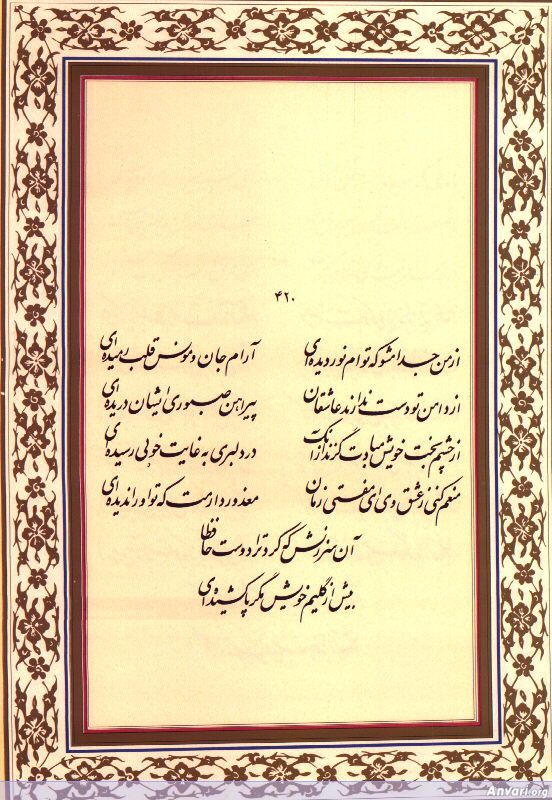 ۴۲۰
از من جدا مشو که توام نور دیده‌ای آرام جان و مونس قلب رمیده‌ای
از دامن تو دست ندارند عاشقان پیراهن صبوری ایشان دریده‌ای
از چشم بخت خویش مبادت گزند از آنک در دلبری به غایت خوبی رسیده‌ای
منعم کنی ز عشق وی ای مفتی زمان معذور دارمت که تو او را ندیده‌ای
آن سرزنش که کرد ترا دوست حافظا
بیش از گلیم خویش مگر پا کشیده‌ای
Anvari.org